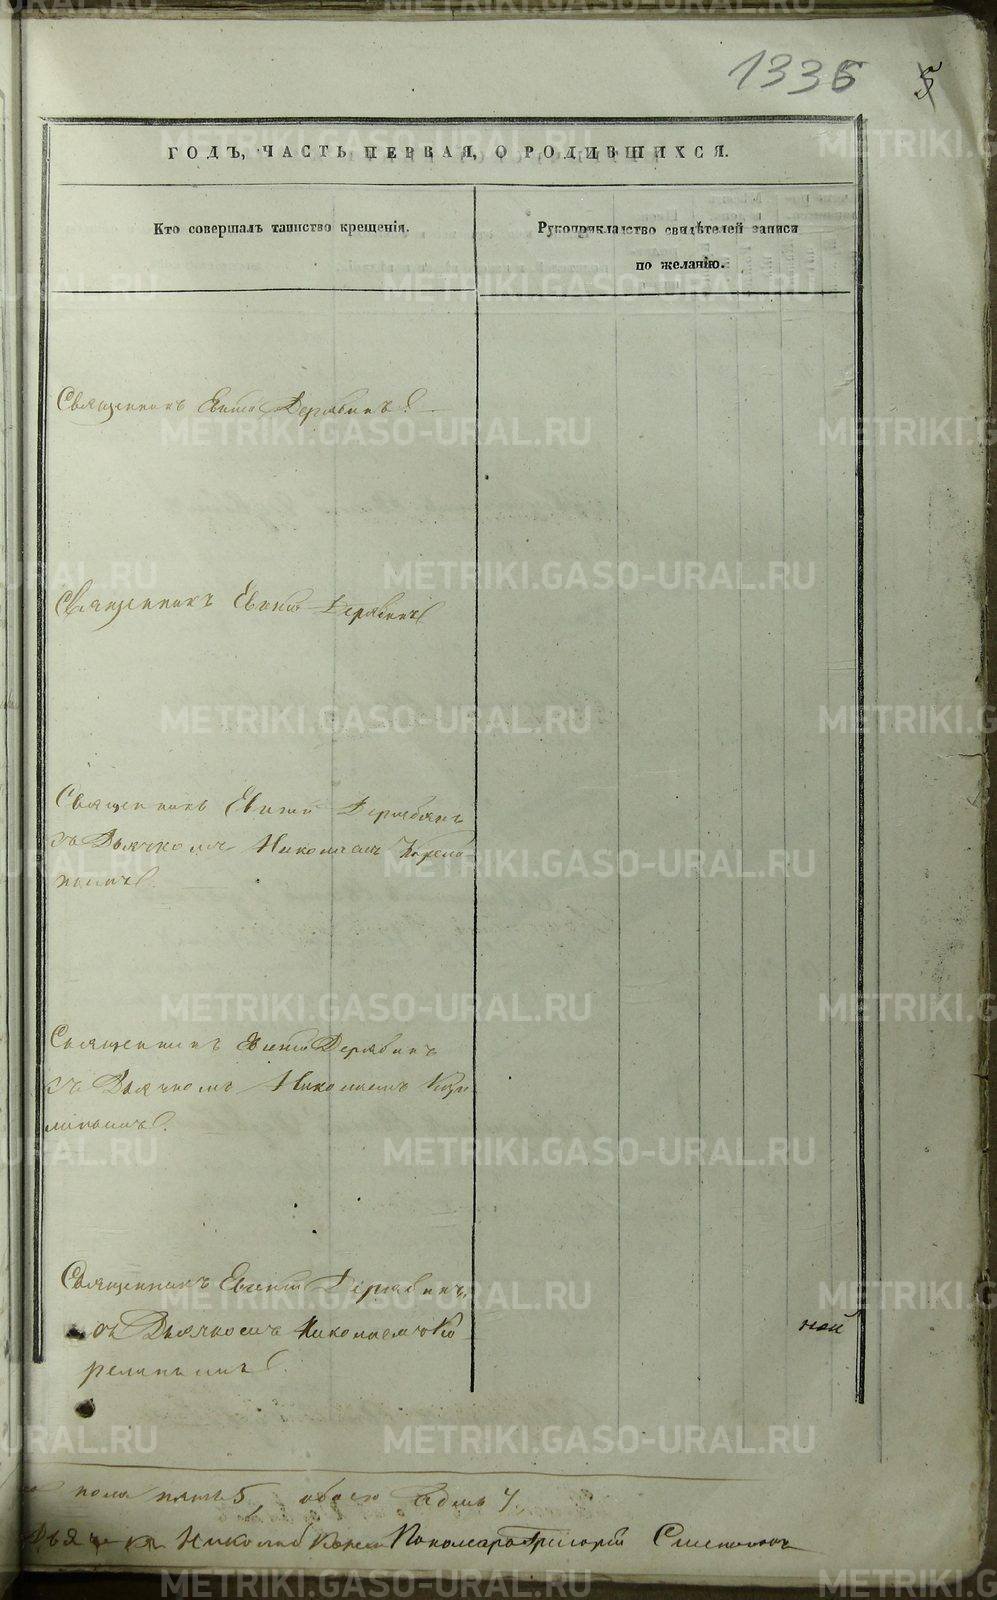 1335
5
ГОДЪ, ЧАСТЬ ПЕРВАЯ, О РОДИВШИХСЯ.
Кто совершалъ таинство крещенія.
Рукоприкладство свидѣтелей записи
по желанію.
Священникъ Евѳимій Дерябинъ
Священникъ Евѳимій Дерябинъ
Священникъ Евѳимій Дерябинъ
съ Дьячкомъ Николаемъ Корели-
нымъ.
Священникъ Евѳимій Дерябинъ
съ Дьячкомъ Николаемъ
Священникъ Евѳимій Дерябинъ
съ Дьячкомъ Николаемъ Ко
релинымъ.
ной
пола пять 5, обоего семь 7.
Дьячекъ Николай Пономарь Григорій
METRIKI.GASO-URAL.RU